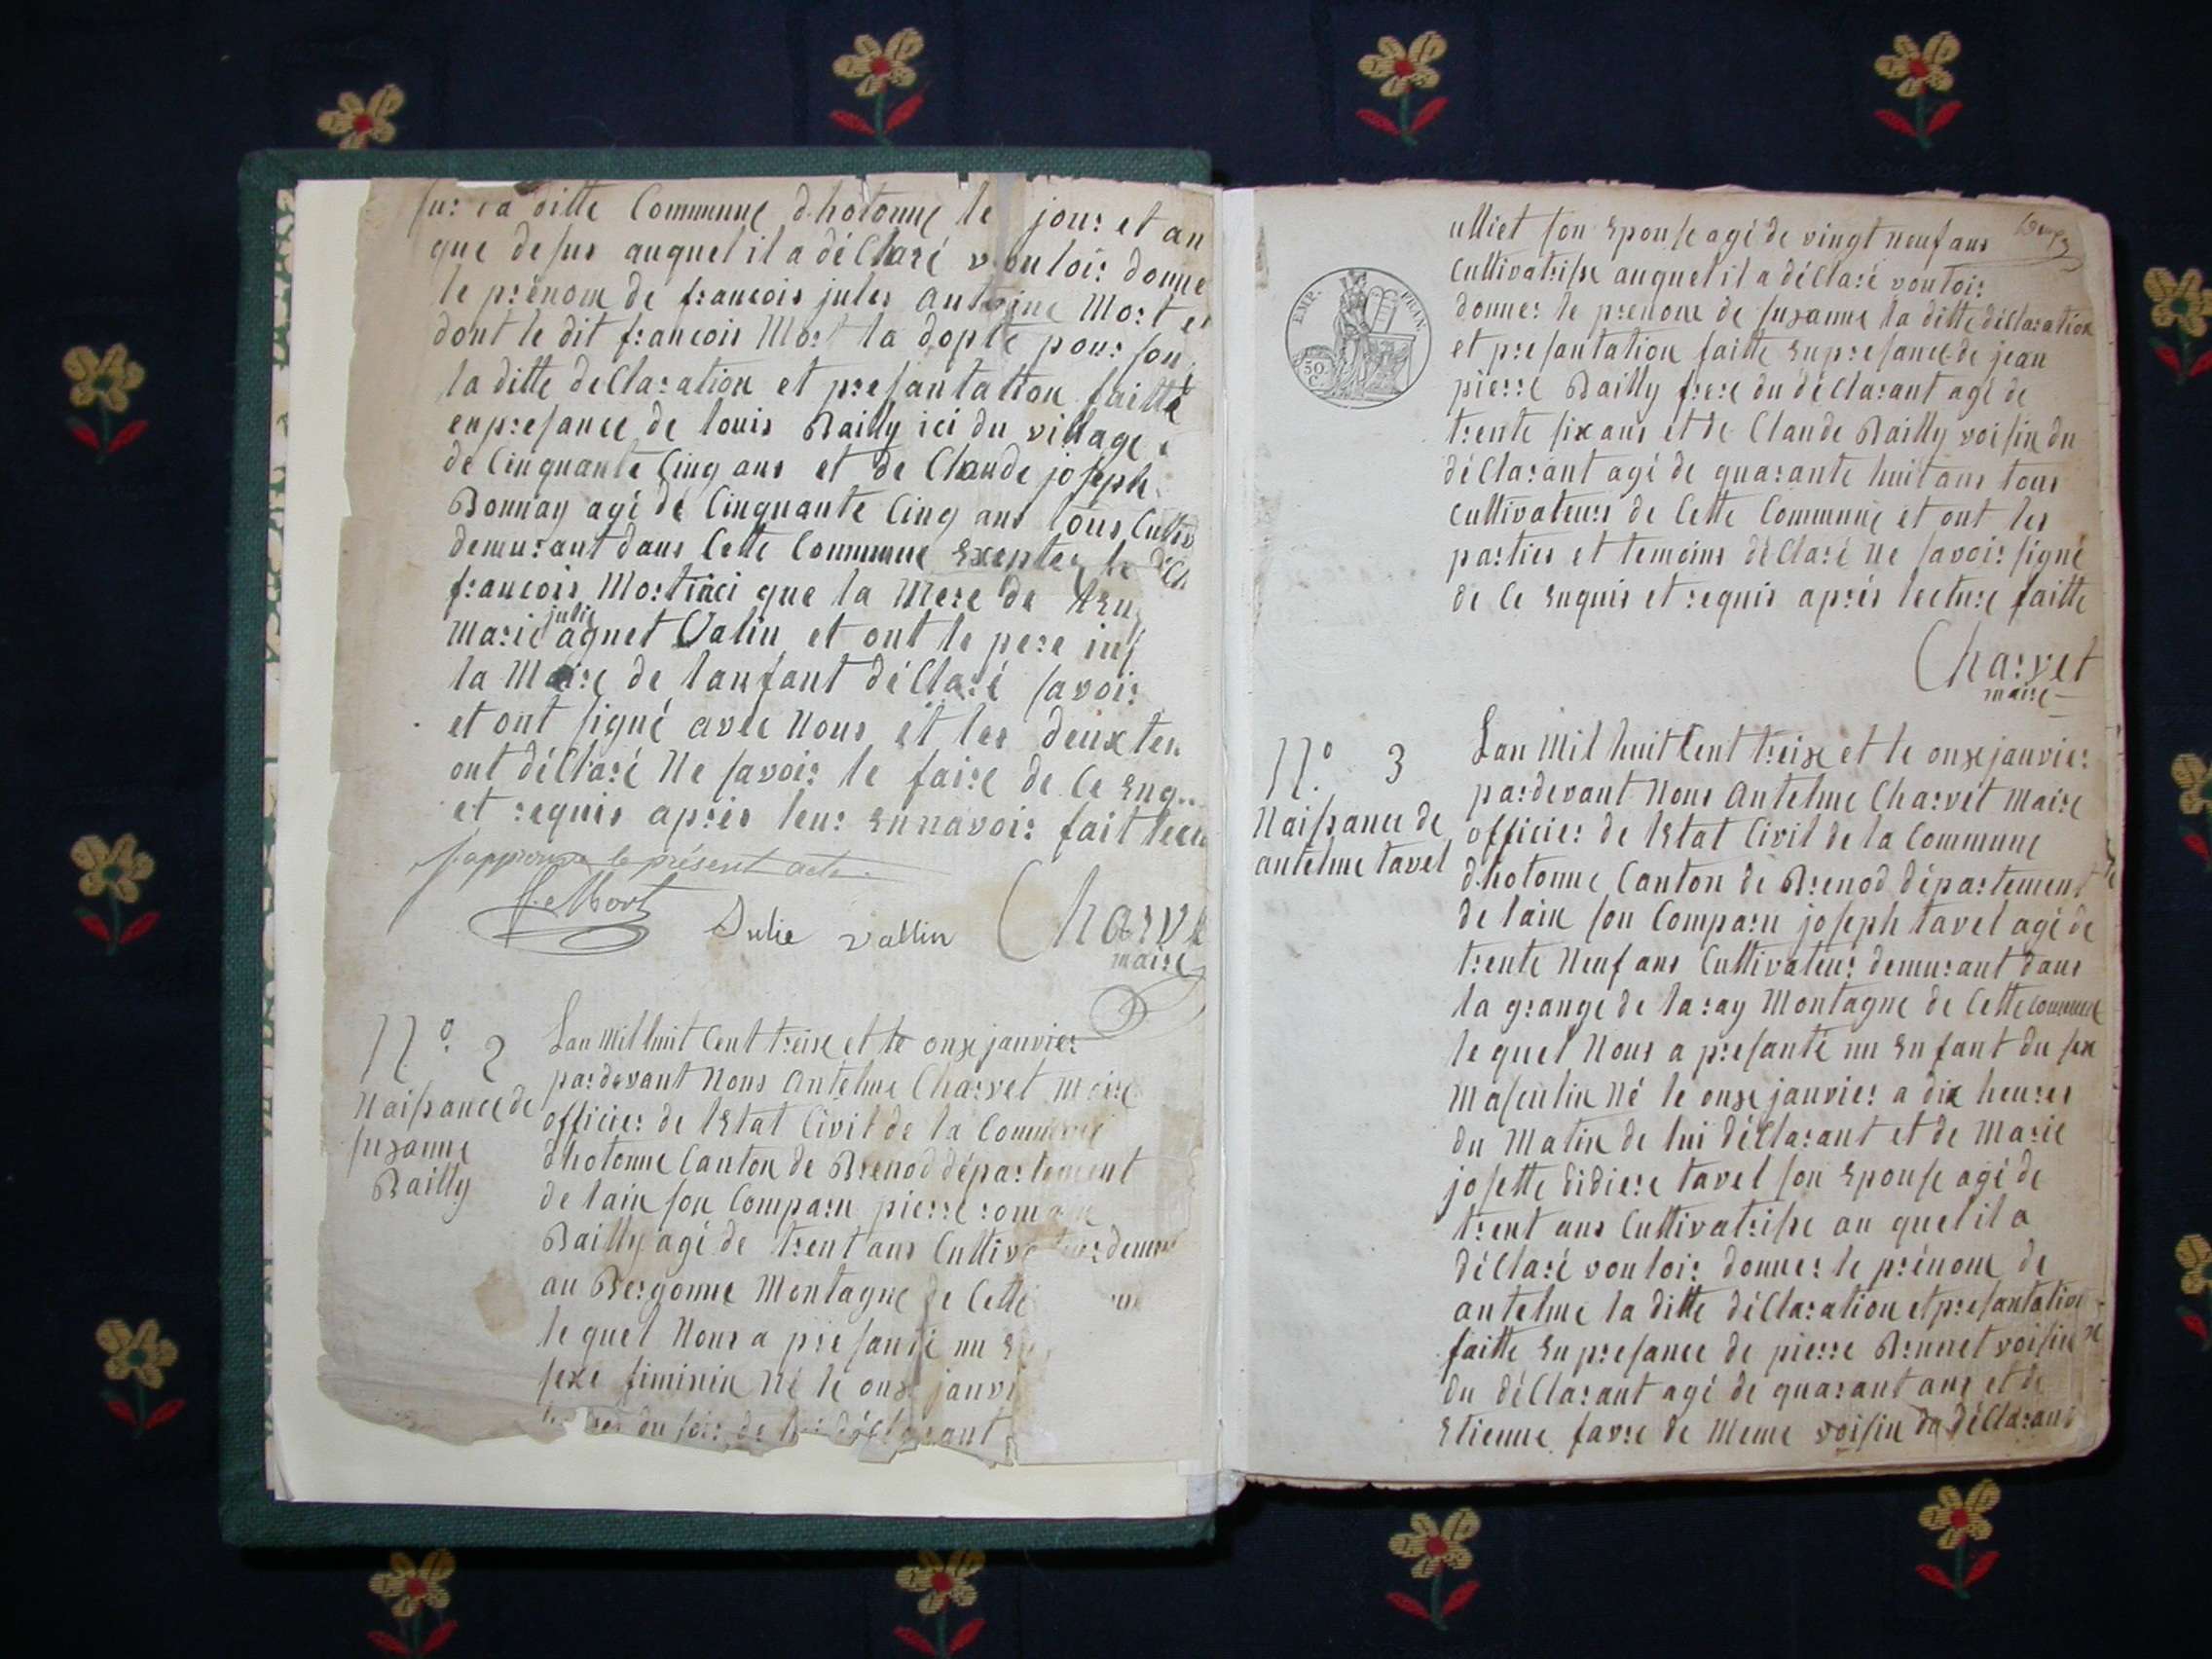 sur la ditte Commune d'hotonne le jour et an
que desus auquel il a déClaré vouloir donne
le prénom de francois jules antoine Mort et
dont le dit francois Mort la dopte pour son
la ditte declaration et presantation faitte
enpresance de louis Bailly ici du village
de Cinquante Cinq ans et de Claude joseph
Bonnay agé de Cinquante Cinq ans tous Cultiv
demurant dans Cette Commune Exepter le
francois Mort inci que la Mere de
julie
Marie aguet Valin et ont le pere
la Maire de lanfant déClaré savoir
et ont signé avec Nous et les deux
ont déClaré Ne savoir le faire de Ce
et requis aprés leur Ennavoir fait
japprouve le présent acte
Mort Julie vallin Charve
maire
N° 2
Naissance de
susanne
Bailly
Lan Mil huit Cent treize et le onze janvier
pardevant Nous antelme Charvet Maire
officier de lEtat Civil de la Commune
dhotonne Canton de Brenod département
de lain son Comparu pierre
Bailly agé de trent ans
au Bergonne Montagne de Cette
le quel Nous a presanté un
sexe feminin Né le onze janvi
du soir de lui déClarant
ulliet son Epouse agé de vingt neuf ans
Cultivatrisse auquel il a déClaré vouloir
donner le prenom de susanne la ditte déClaration
et presantation faitte Enpresance de jean
pierre Bailly frere du déClarant agé de
trente six ans et de Claude Bailly voisin du
déClarant agé de quarante huit ans tous
Cultivateurs de Cette Commune et ont les
parties et temoins déClaré Ne savoir signé
de Ce Enquis et requis aprés lecture faitte
Charvet
maire
EMP. FRAN.
50
C.
N° 3
Naissance de
antelme tavel
Lan Mil huit Cent treize et le onze janvier
pardevant Nous antelme Charvet Maire
officier de lEtat Civil de la Commune
dhotonne Canton de Brenod département
de lain son Comparu joseph tavel agé de
trente Neuf ans Cultivateur demurant dans
la grange de laray Montagne de Cette Commune
le quel Nous a presanté un Enfant du sex
Masculin Né le onze janvier a dix heures
du Matin de lui déClarant et de Marie
josette didiere tavel son Epouse agé de
trent ans Cultivatrisse au quel il a
déClaré vouloir donner le prénom de
antelme la ditte déClaration et presantation
faitte Enpresance de pierre Brunet voisin
du déClarant agé de quarant ans et de
Etienne favre de Meme voisin du déClarant